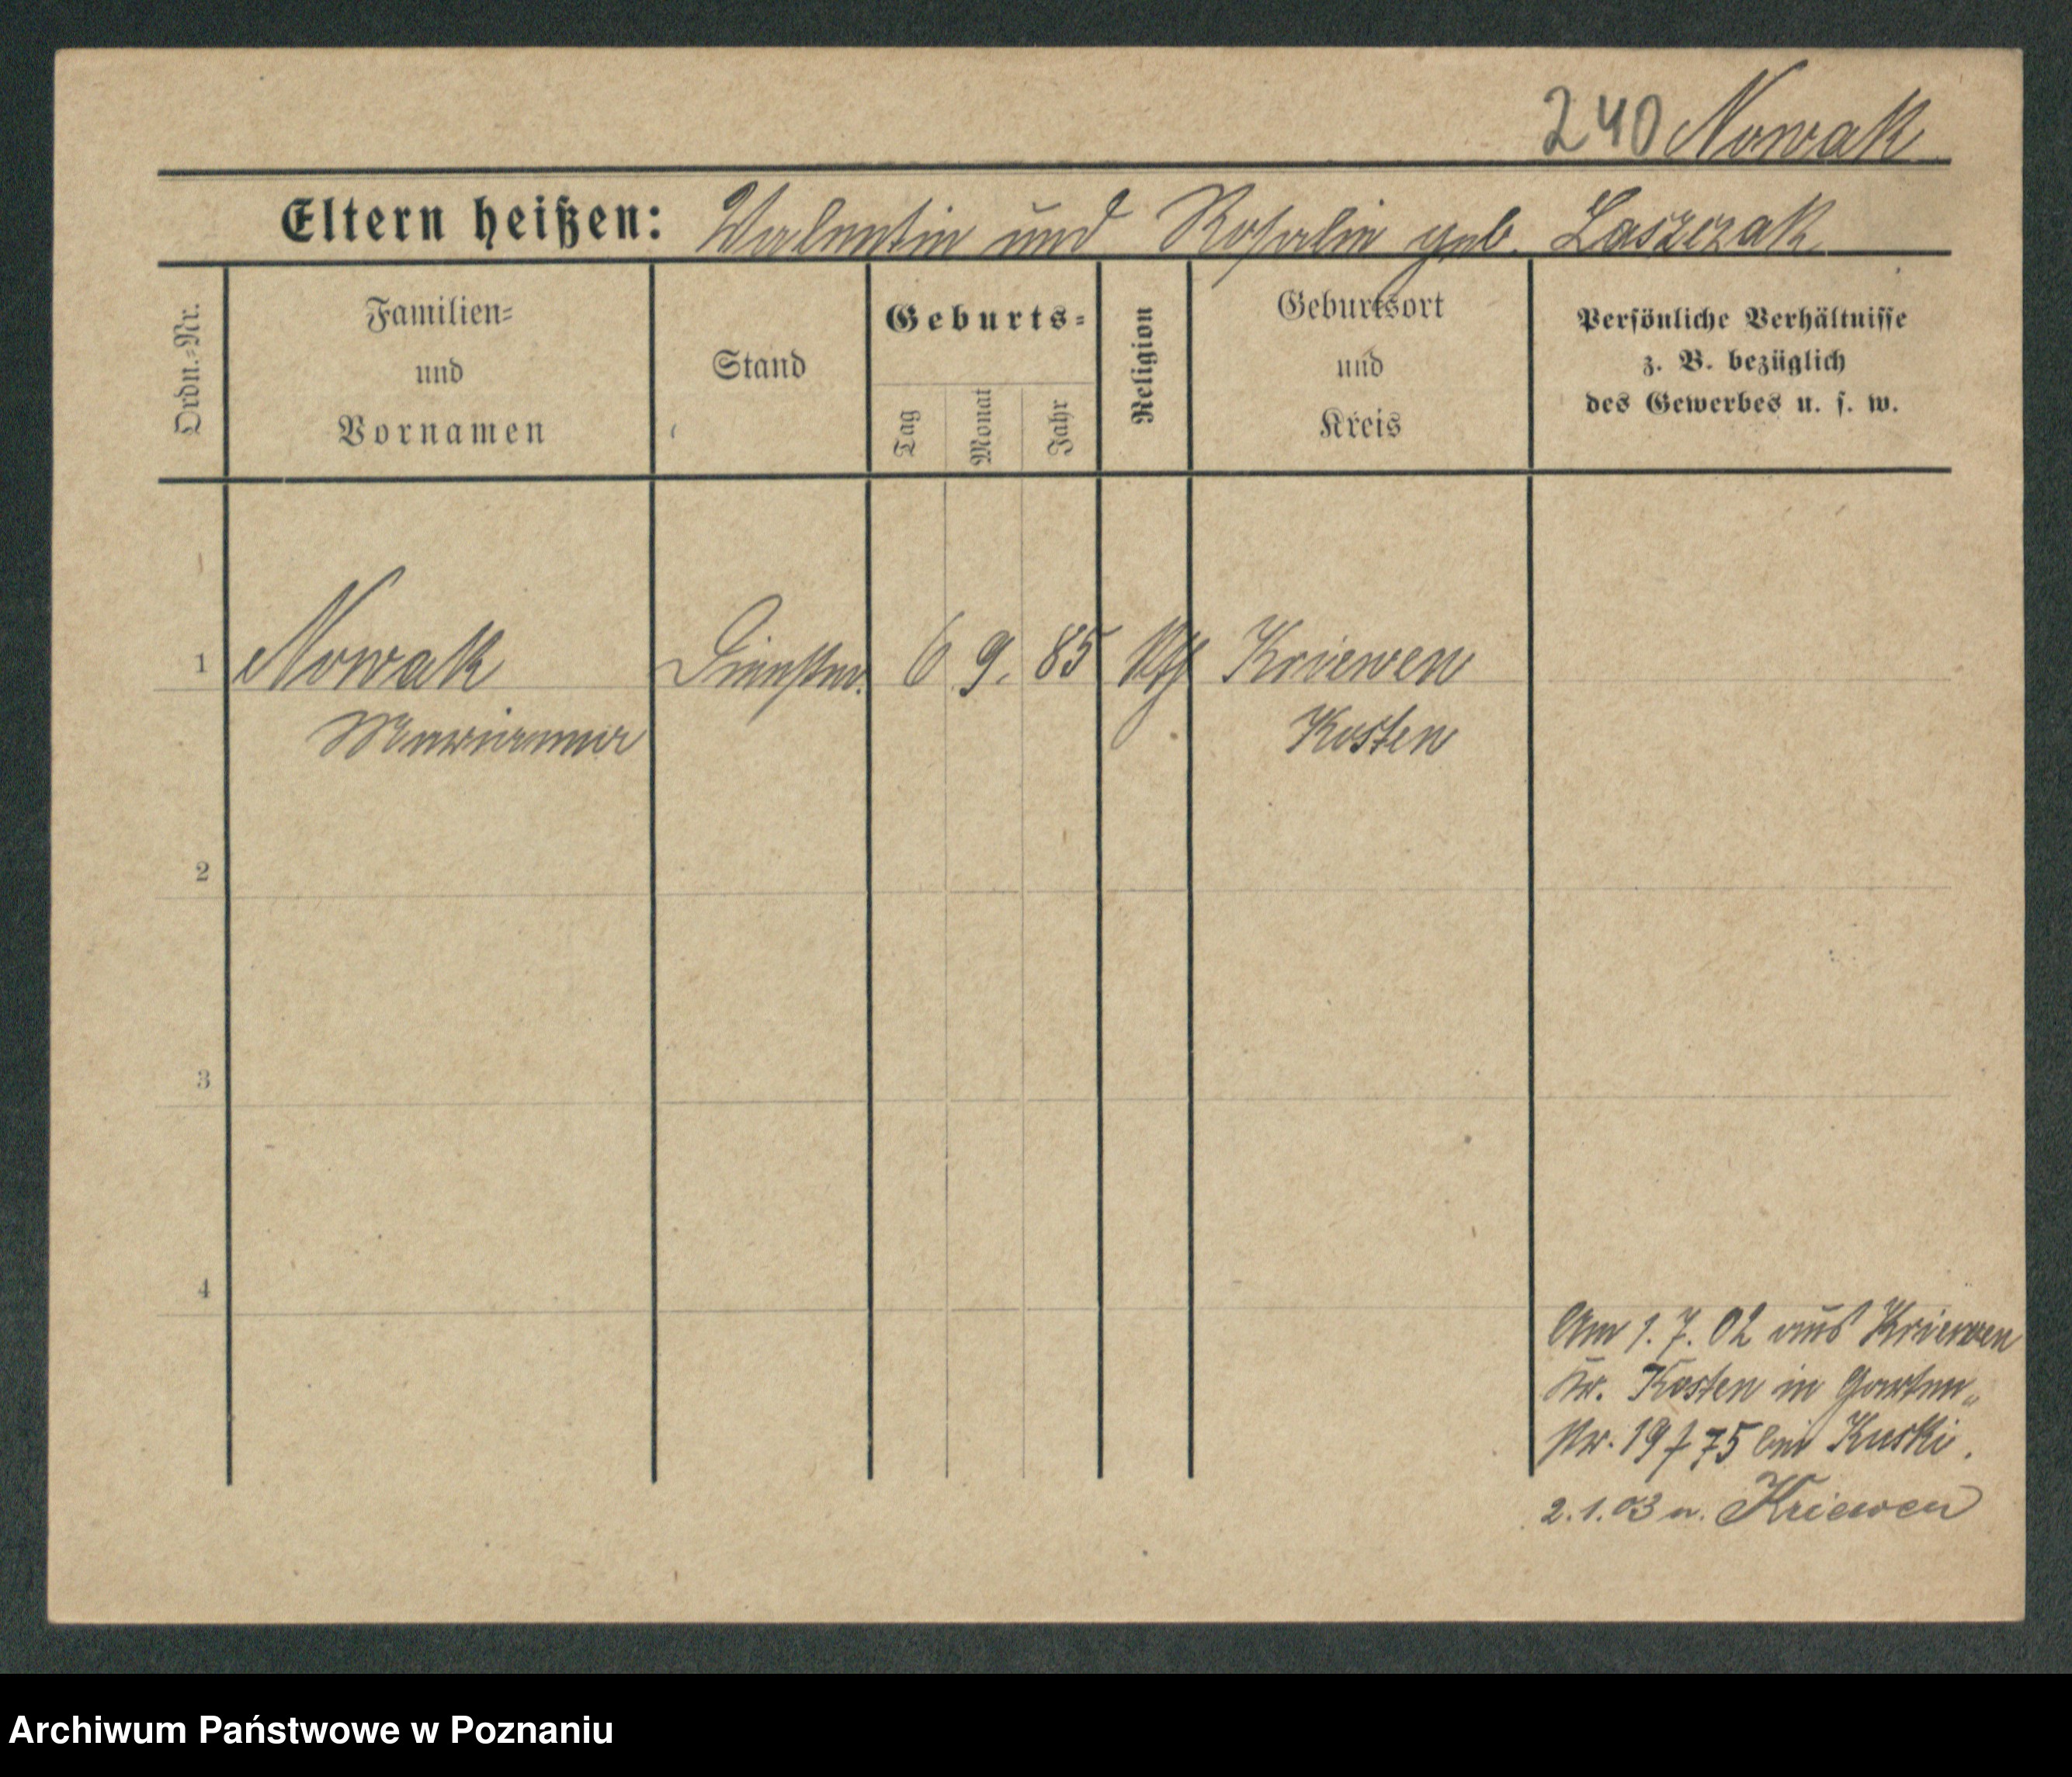 240 Nowak
Eltern heißen: Valentin und Rosalie geb. Laszczak
Ordn.=Nr.
Familien=
und
Vornamen
Stand
Geburts=
Tag
Monat
Jahr
Religion
Geburtsort
und
Kreis
Persönliche Verhältnisse
z. B. bezüglich
des Gewerbes u. s. w.
1 Nowak 6 9. 85 Kth Kriewen
Marianna Kosten
2
3
4
Am 1. 7. 02 aus Kriewen
Kr. Kosten in Garten„
19 f 75 bei Kuski.
2. 1. 03 n. Kriewen
Archiwum Państwowe w Poznaniu